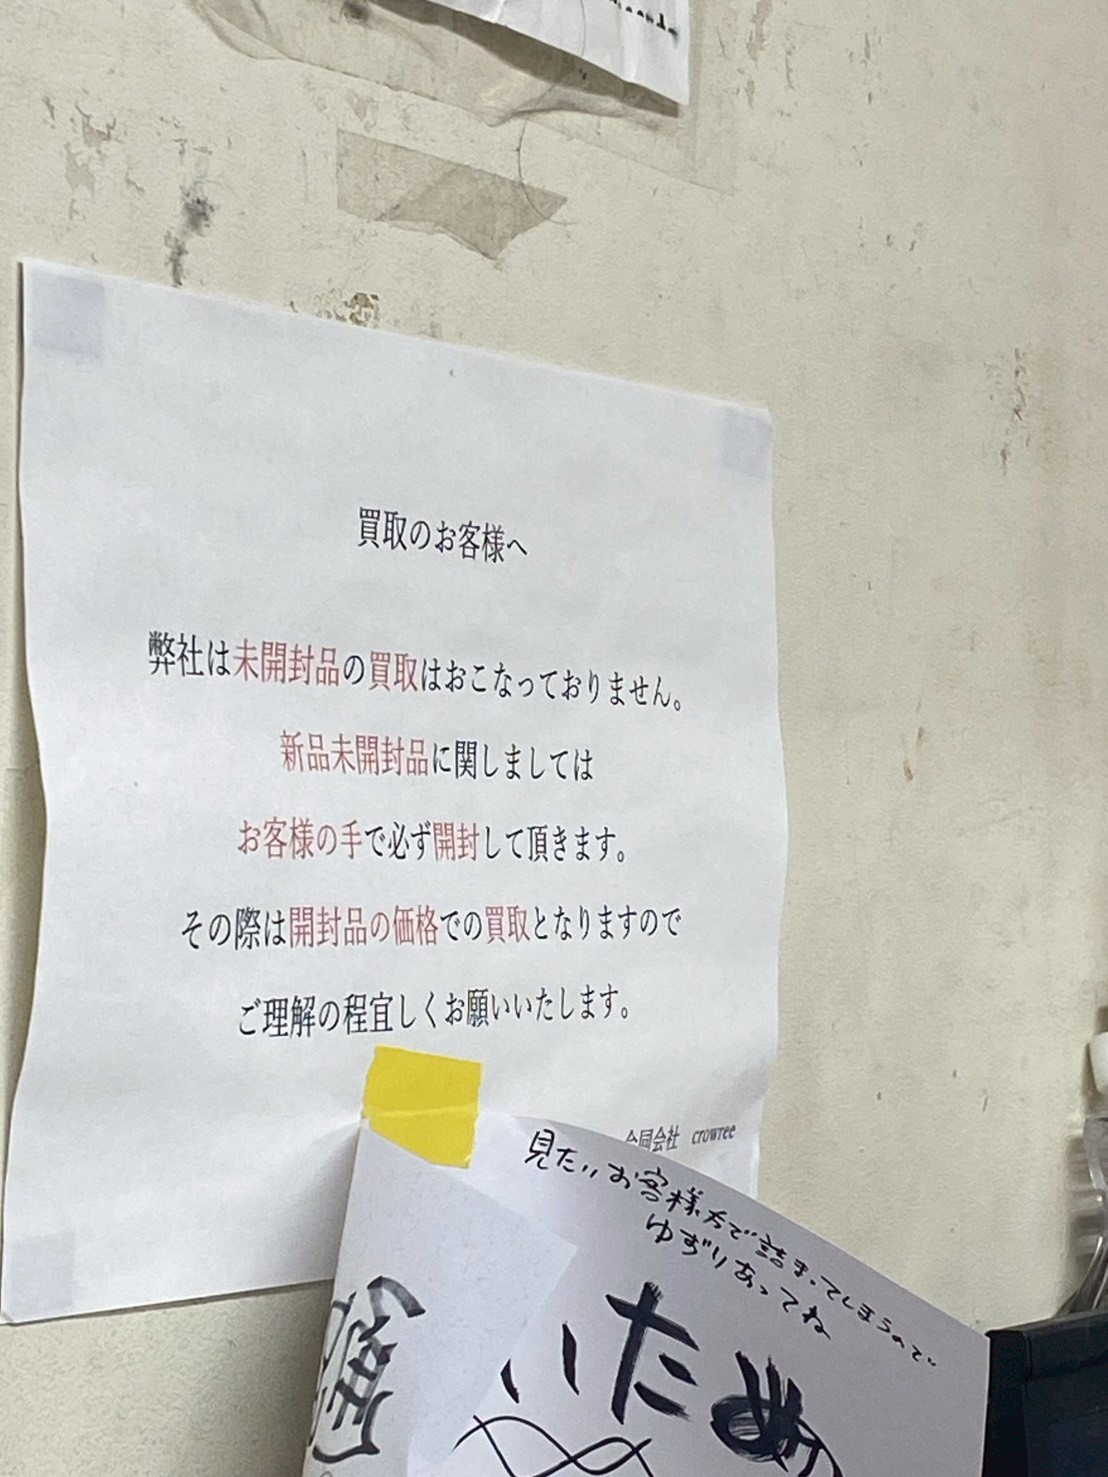 買取のお客様へ
弊社は未開封品の買取はおこなっておりません。
新品未開封品に関しましては
お客様の手で必ず開封して頂きます。
その際は開封品の価格での買取となりますので
ご理解の程宜しくお願いいたします。
合同会社 crowree
見たいお客様方で詰まってしまうので
ゆずりあってね
いため